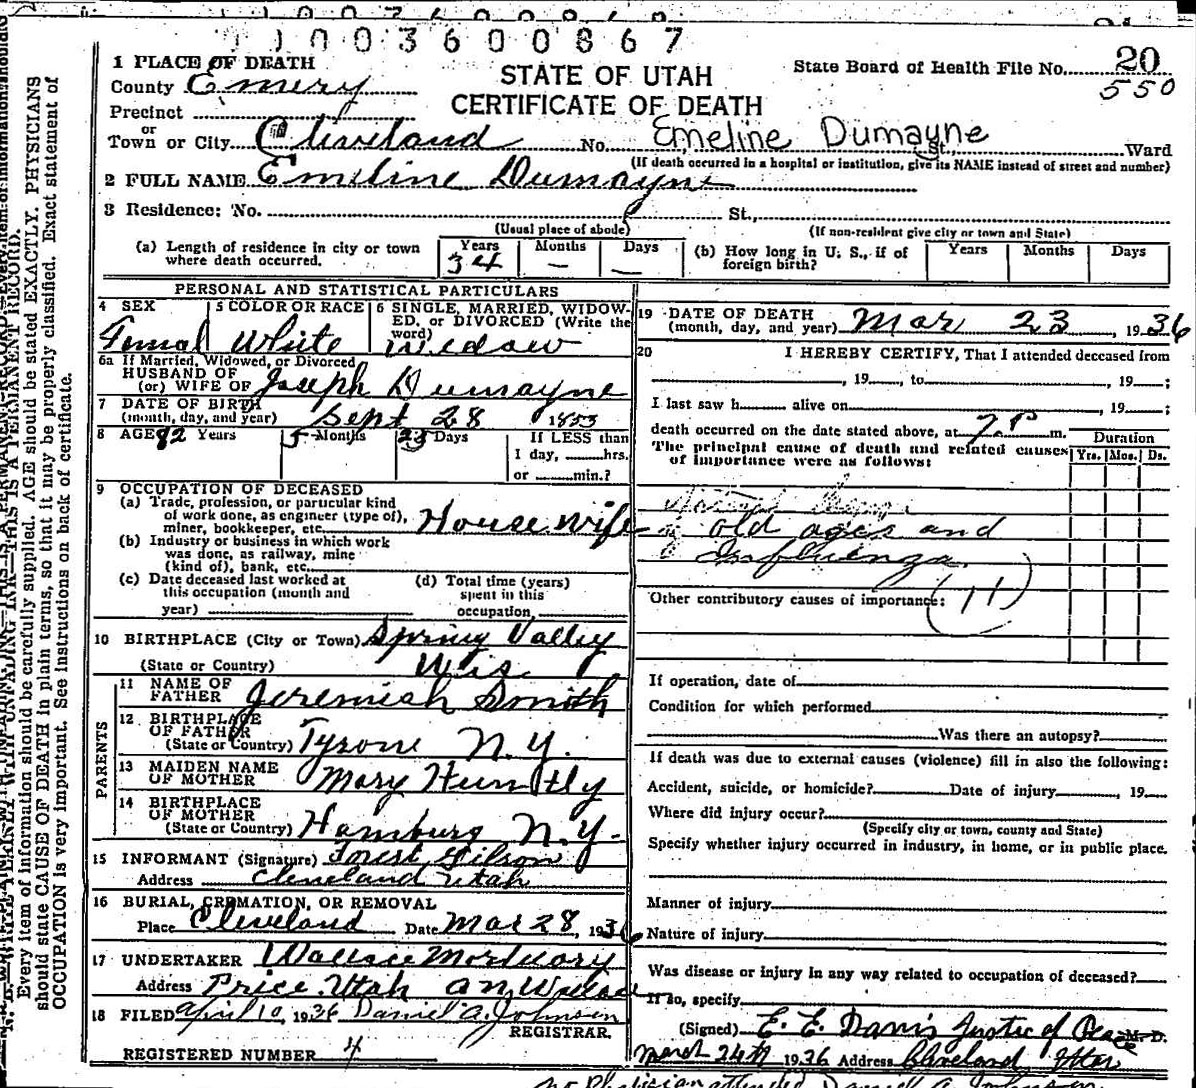 1 1 0 0 3 6 0 0 8 6 7
1 PLACE OF DEATH
STATE OF UTAH
CERTIFICATE OF DEATH
State Board of Health File No. 20
550
County Emery
Precinct
or
Town or City Cleveland No. Emeline Dumayne St., Ward
(If death occurred in a hospital or institution, give its NAME instead of street and number)
2 FULL NAME Emeline Dumayne
3 Residence: No. St.,
(Usual place of abode) (If non-resident give city or town and State)
(a) Length of residence in city or town where death occurred. Years 34 Months — Days —
(b) How long in U. S., if of foreign birth? Years Months Days
PERSONAL AND STATISTICAL PARTICULARS
4 SEX Femal
5 COLOR OR RACE White
6 SINGLE, MARRIED, WIDOWED, or DIVORCED (Write the word) Widow
6a If Married, Widowed, or Divorced
HUSBAND OF
(or) WIFE OF Joseph Dumayne
7 DATE OF BIRTH
(month, day, and year) Sept 28 1853
8 AGE 82 Years 5 Months 23 Days
If LESS than
1 day, hrs.
or min.?
9 OCCUPATION OF DECEASED
(a) Trade, profession, or particular kind
of work done, as engineer (type of),
miner, bookkeeper, etc. House wife
(b) Industry or business in which work
was done, as railway, mine
(kind of), bank, etc.
(c) Date deceased last worked at
this occupation (month and
year)
(d) Total time (years)
spent in this
occupation
10 BIRTHPLACE (City or Town) Spring Valley
(State or Country) Wis
PARENTS
11 NAME OF
FATHER Jeremiah Smith
12 BIRTHPLACE
OF FATHER
(State or Country) Tyrone N.Y.
13 MAIDEN NAME
OF MOTHER Mary Huntly
14 BIRTHPLACE
OF MOTHER
(State or Country) Hamburg N.Y.
15 INFORMANT (Signature)
Address Cleveland Utah
16 BURIAL, CREMATION, OR REMOVAL
Place Cleveland Date Mar 28, 1936
17 UNDERTAKER Wallace Mortuary
Address Price Utah
18 FILED April 10, 1936 Daniel A. Johnson
REGISTRAR.
REGISTERED NUMBER 4
19 DATE OF DEATH
(month, day, and year) Mar 23 1936
20 I HEREBY CERTIFY, That I attended deceased from
, 19 , to , 19 ;
I last saw h alive on , 19 ;
death occurred on the date stated above, at 7. P m.
The principal cause of death and related causes
of importance were as follows:
Duration
Yrs. Mos. Ds.
old ages and
Influenza
Other contributory causes of importance: (11)
If operation, date of
Condition for which performed
Was there an autopsy?
If death was due to external causes (violence) fill in also the following:
Accident, suicide, or homicide? Date of injury , 19
Where did injury occur?
(Specify city or town, county and State)
Specify whether injury occurred in industry, in home, or in public place.
Manner of injury
Nature of injury
Was disease or injury in any way related to occupation of deceased?
If so, specify
(Signed) E. E. Davis Justice of Peace M. D.
March 24th 1936 Address Cleveland Utah
no Physician attended Daniel A. Johnson
Every item of information should be carefully supplied. AGE should be stated EXACTLY. PHYSICIANS
should state CAUSE OF DEATH in plain terms, so that it may be properly classified. Exact statement of
OCCUPATION is very important. See instructions on back of certificate.